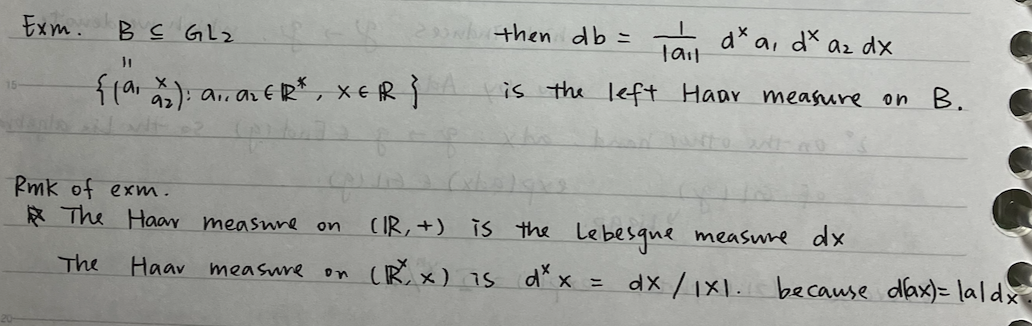 Exm. B ⊆ GL₂ then db = 1/|a₁| d^× a₁ d^× a₂ dx
"
{(a₁ x a₂): a₁, a₂ ∈ ℝ*, x ∈ ℝ} is the left Haar measure on B.
Rmk of exm.
The Haar measure on (ℝ, +) is the Lebesgue measure dx
The Haar measure on (ℝ^×, ×) is d^× x = dx / |x|. because d(ax) = |a| dx